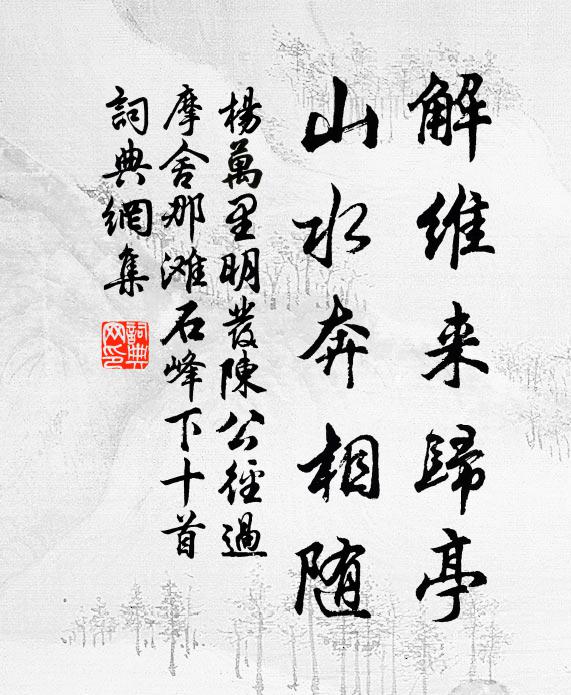 解维来歸亭
山水奔相随
楊萬里明發陳公徑過
摩舍那滩石峰下十首
詞典網集
詞典網印